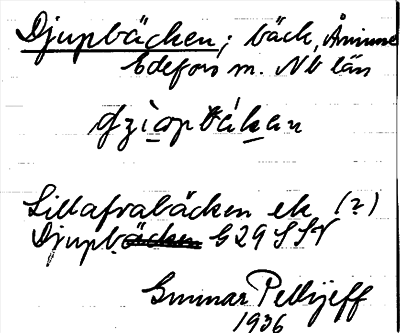 Djupbäcken; bäck, Åminne
Edefors m. Nb län
Lillafvabäcken ek (?)
Djupbäcken G29 SSV
Gunnar Pellijeff
1936